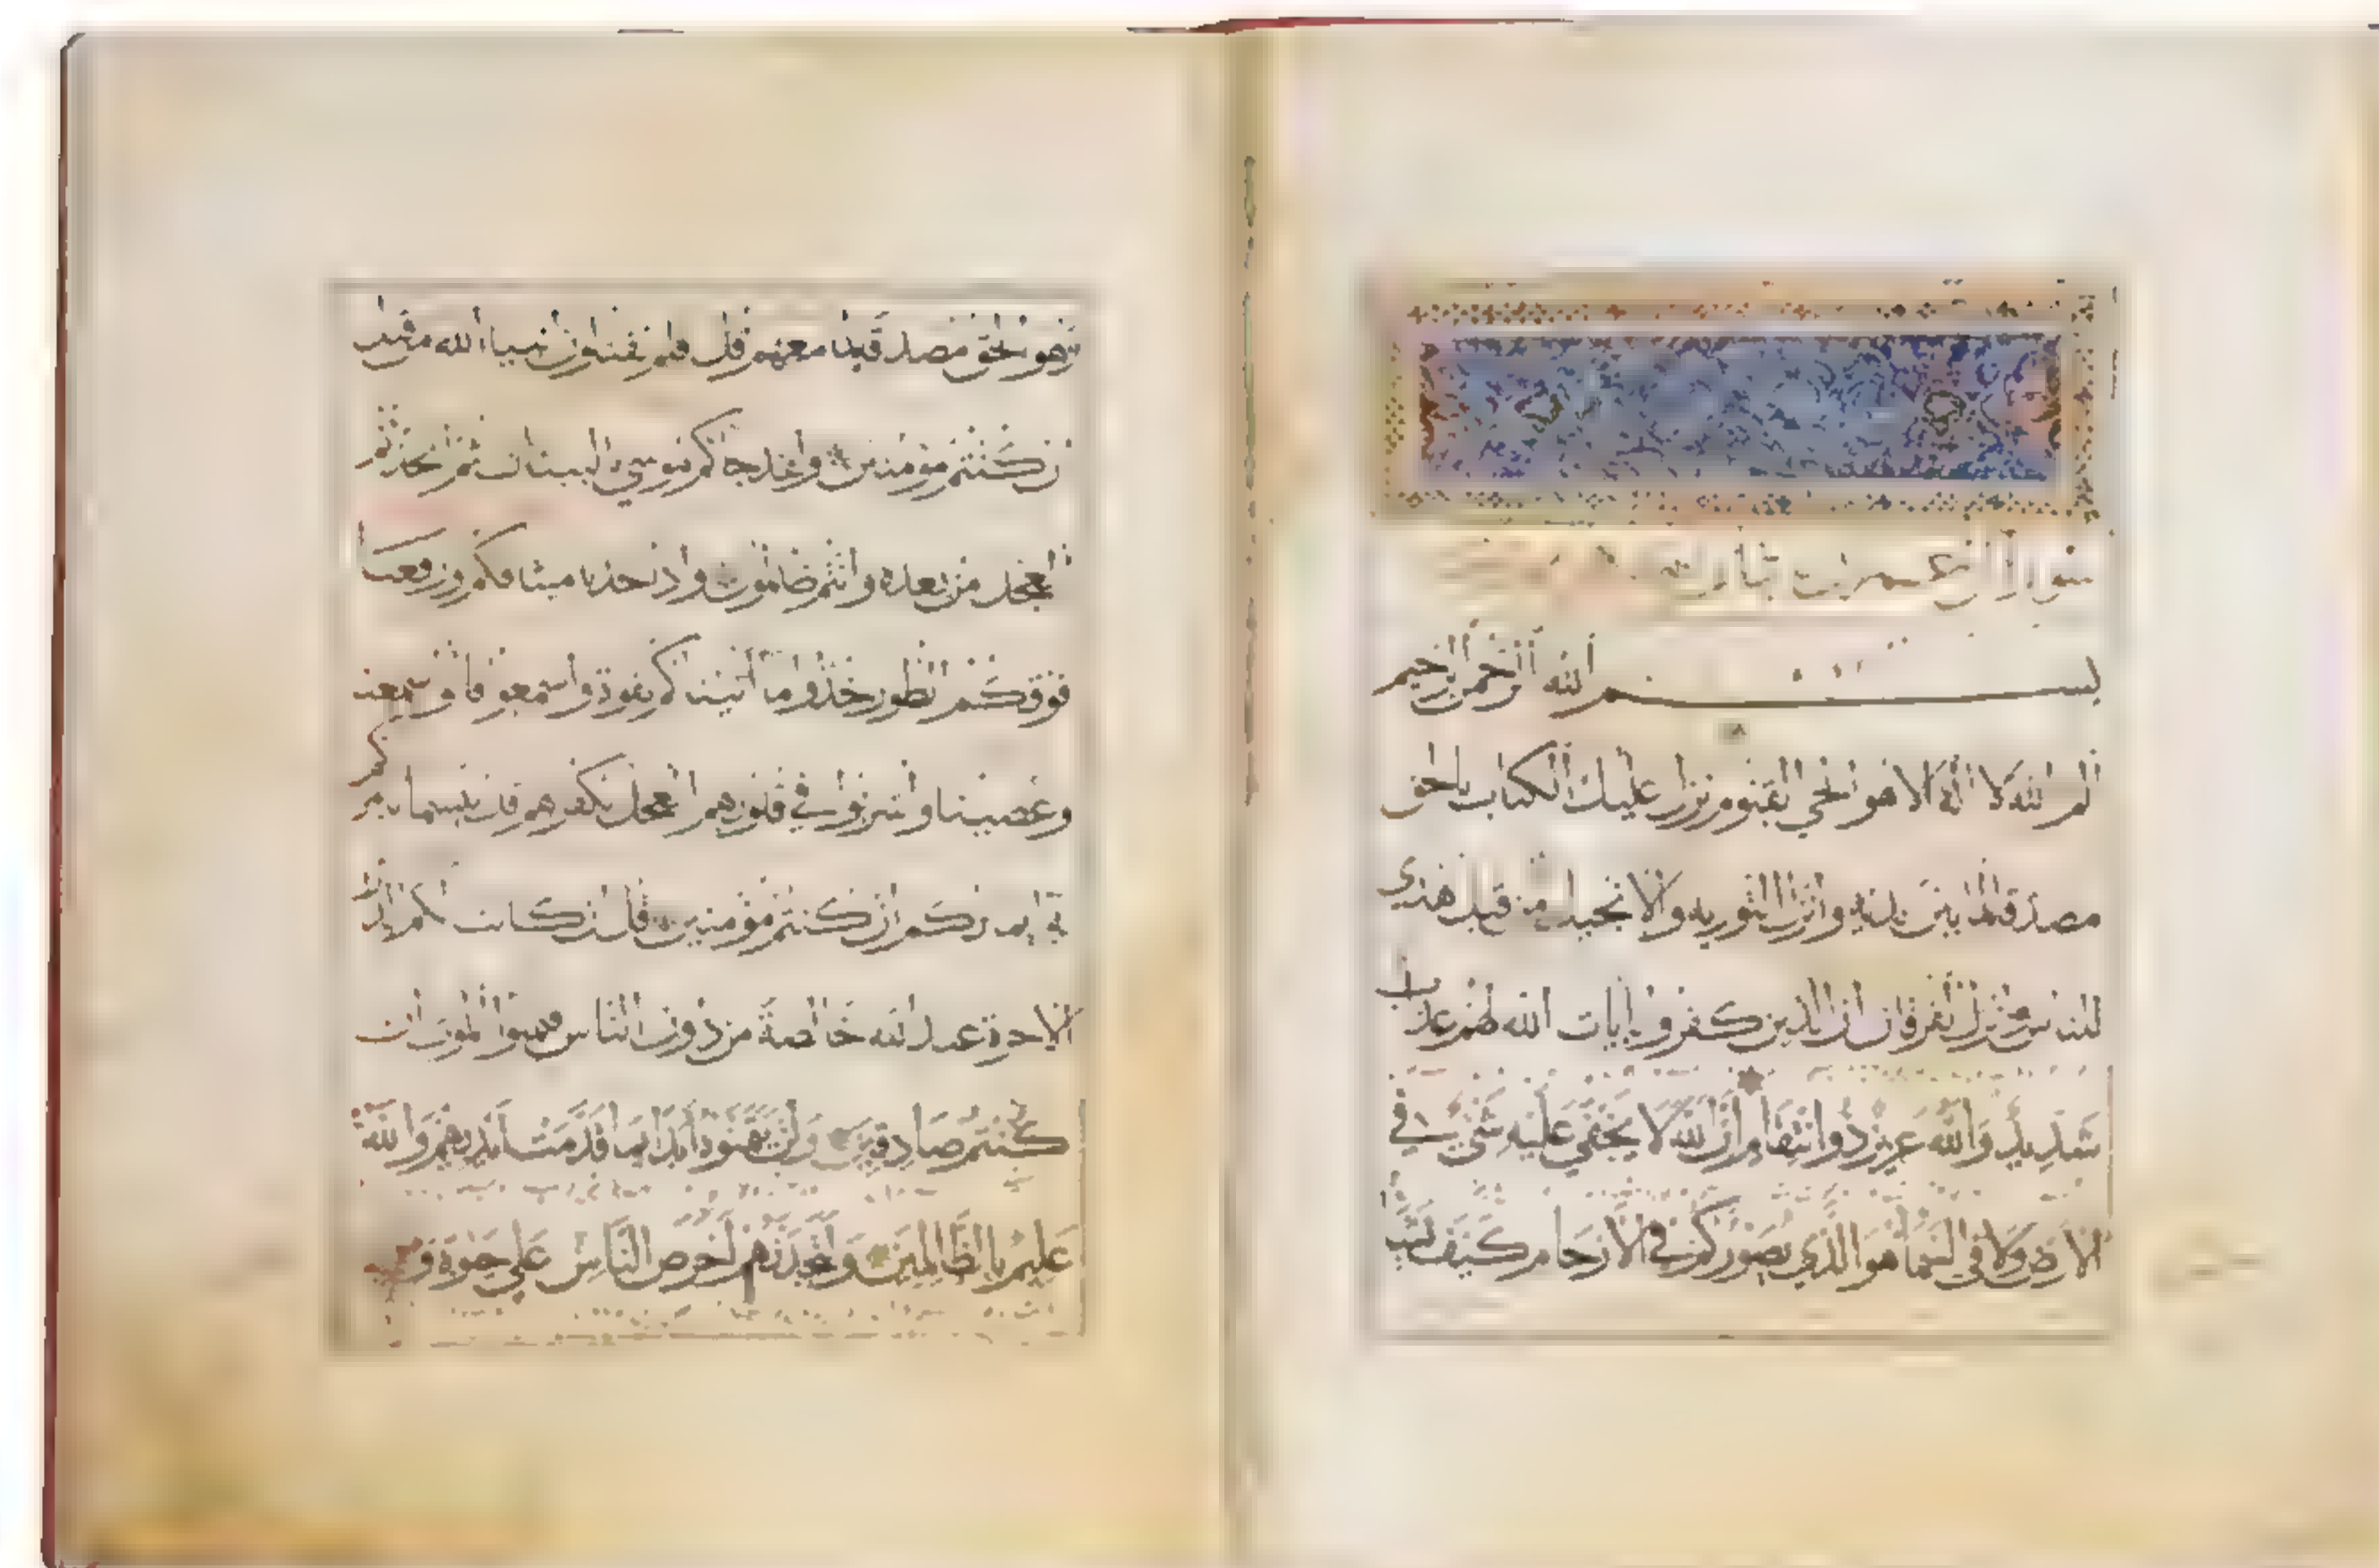 سورة ال عمران
بسم الله الرحمن الرحيم
الم الله لا اله الا هو الحي القيوم نزل عليك الكتاب بالحق
مصدقا لما بين يديه وانزل التوريه والانجيل من قبل هدى
للناس وانزل الفرقان ان الذين كفروا بايات الله لهم عذاب
شديد والله عزيز ذو انتقام ان الله لا يخفى عليه شيء في
الارض ولا في السما هو الذي يصوركم في الارحام كيف
وهو الحق مصدقا لما معهم قل فلم تقتلون انبيا الله من قبل
ان كنتم مومنين ولقد جاكم موسى بالبينات ثم اتخذتم
العجل من بعده وانتم ظالمون واذ اخذنا ميثاقكم ورفعنا
فوقكم الطور خذوا ما اتيناكم بقوة واسمعوا قالوا سمعنا
وعصينا واشربوا في قلوبهم العجل بكفرهم قل بئسما يامركم
به ايمانكم ان كنتم مومنين قل ان كانت لكم الدار
الاخرة عند الله خالصة من دون الناس فتمنوا الموت ان
كنتم صادقين ولن يتمنوه ابدا بما قدمت ايديهم والله
عليم بالظالمين ولتجدنهم احرص الناس على حيوة و